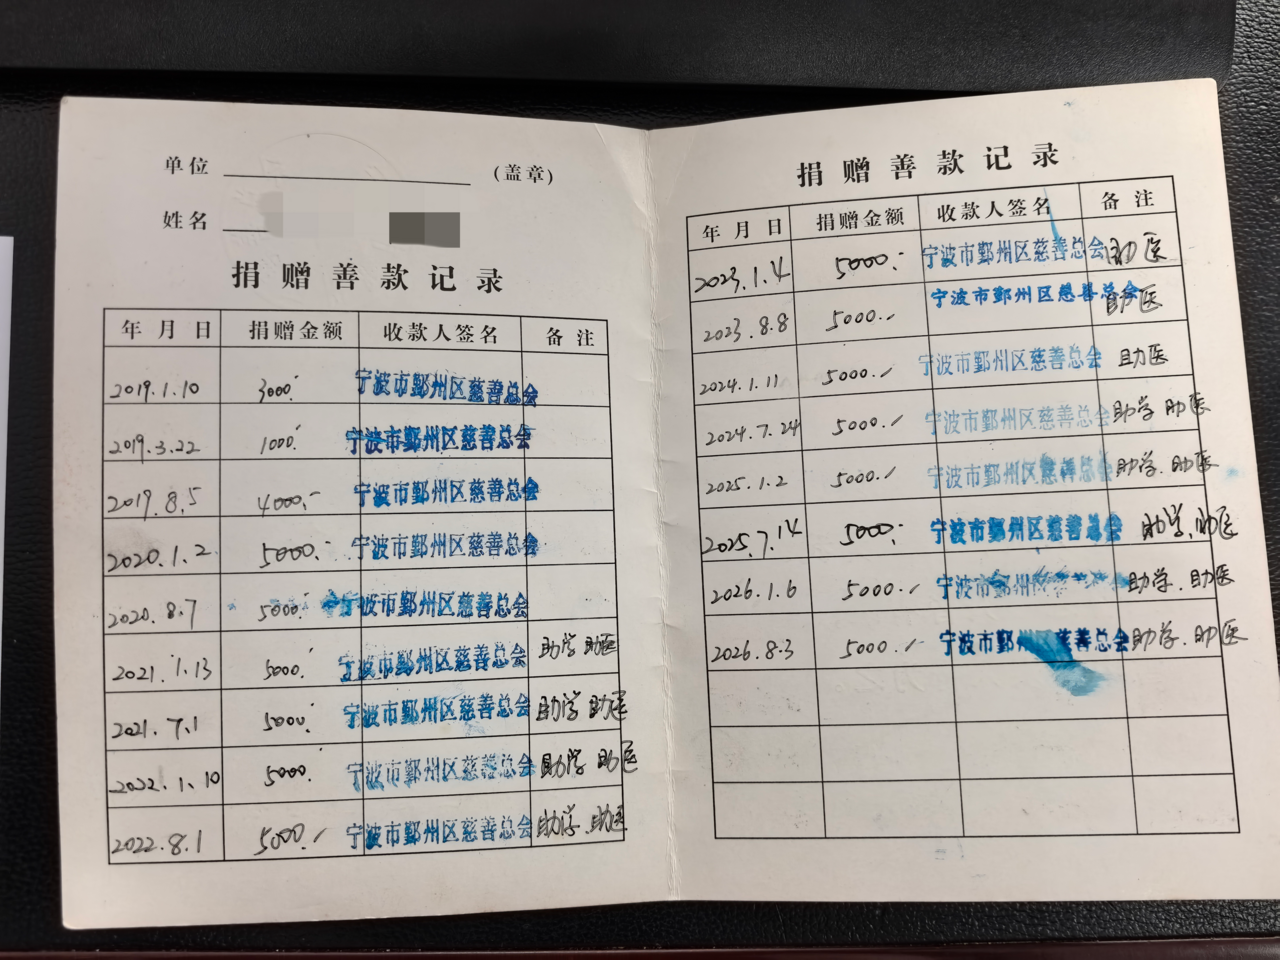 单位 (盖章)
姓名
捐赠善款记录
年月日 捐赠金额 收款人签名 备注
2019.1.10 3000.- 宁波市鄞州区慈善总会
2019.3.22 1000.- 宁波市鄞州区慈善总会
2019.8.5 4000.- 宁波市鄞州区慈善总会
2020.1.2 5000.- 宁波市鄞州区慈善总会
2020.8.7 5000.- 宁波市鄞州区慈善总会
2021.1.13 5000.- 宁波市鄞州区慈善总会 助学 助医
2021.7.1 5000.- 宁波市鄞州区慈善总会 助学 助医
2022.1.10 5000.- 宁波市鄞州区慈善总会 助学 助医
2022.8.1 5000.- 宁波市鄞州区慈善总会 助学.助医
捐赠善款记录
年月日 捐赠金额 收款人签名 备注
2023.1.4 5000.- 宁波市鄞州区慈善总会 助医
2023.8.8 5000.- 宁波市鄞州区慈善总会 助医
2024.1.11 5000.- 宁波市鄞州区慈善总会 助医
2024.7.24 5000.- 宁波市鄞州区慈善总会 助学 助医
2025.1.2 5000.- 宁波市鄞州区慈善总会 助学.助医
2025.7.14 5000.- 宁波市鄞州区慈善总会 助学.助医
2026.1.6 5000.- 宁波市鄞州 助学.助医
2026.8.3 5000.- 宁波市鄞州 慈善总会 助学.助医